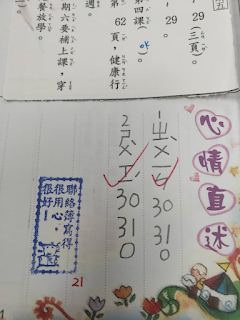 五
29(三頁)。
29。
第四課
第62頁，健康行
週。
期六要補上課，穿
餐放學。
心情直述
1 30 31 0
2 30 31 0
聯絡簿寫得
很用心。
很好！
21